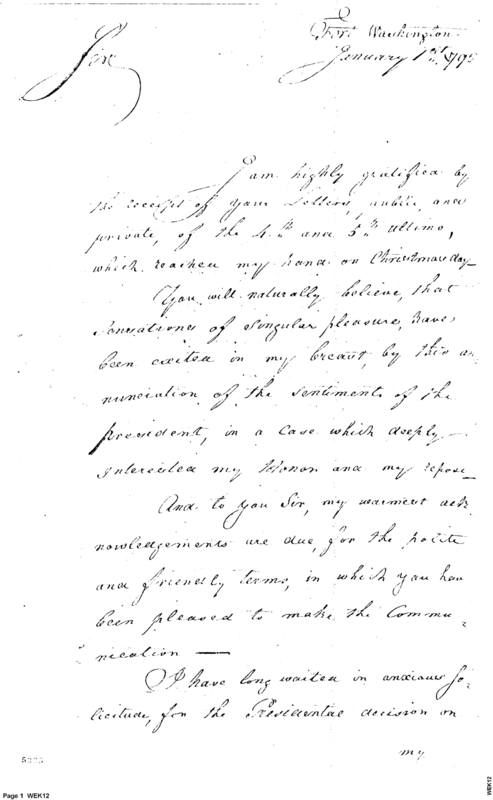 Fort Washington
January 1st 1795
Sir
I am highly gratified by
the receipt of your Letters, public and
private, of the 4th and 5th ultimo,
which reached my hand on Christmas day
You will naturally believe, that
Sensations of Singular pleasure, have
been excited in my breast, by this an
nunciation of the Sentiments of the
President, in a Case which deeply —
interested my Honor and my repose —
And to you Sir, my warmest ack
nowledgements are due, for the polite
and friendly terms, in which you have
been pleased to make the Commu,
nication —
I have long waited in anxious So,
licitude, for the Presidential decision on
my
Page 1 WEK12
WEK12